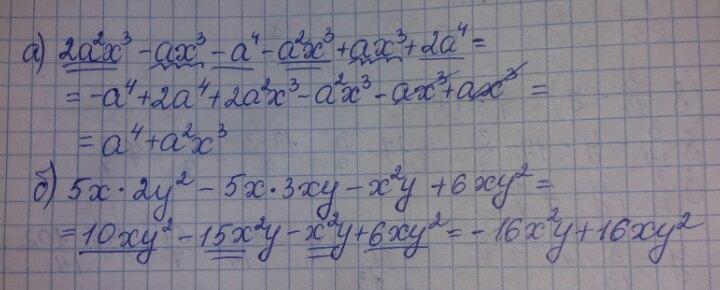 а) 2a²x³ - ax³ - a⁴ - a²x³ + ax³ + 2a⁴ =
= -a⁴ + 2a⁴ + 2a²x³ - a²x³ - ax³ + ax³ =
= a⁴ + a²x³
б) 5x · 2y² - 5x · 3xy - x²y + 6xy² =
= 10xy² - 15x²y - x²y + 6xy² = -16x²y + 16xy²